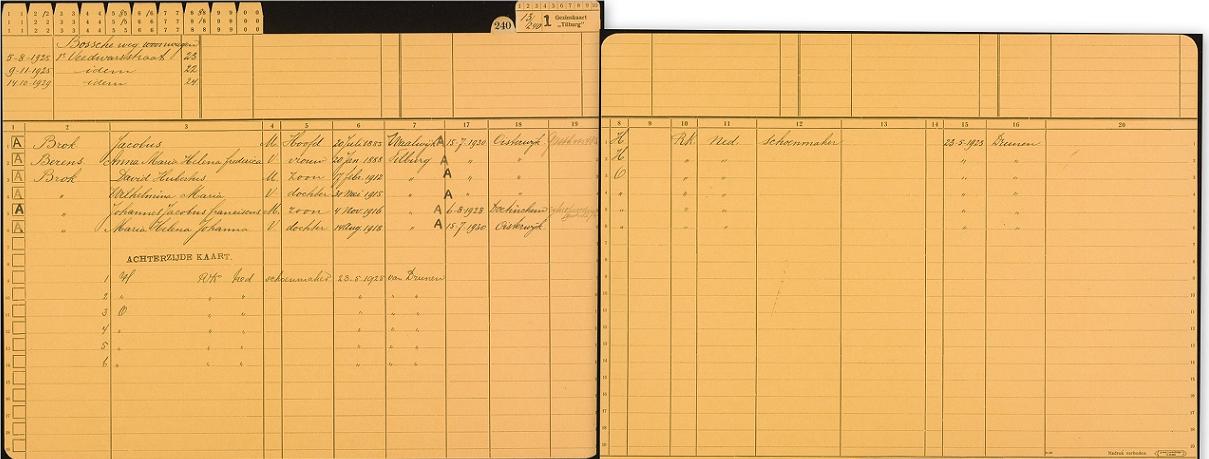 240
1 Gezinskaart
"Tilburg"
Bosscheweg woonwagen
5-8-1925 23
9-11-1925 idem 22
14-10-1929 idem 24
1 2 3 4 5 6 7 17 18 19
A Brok Jacobus M. Hoofd 20 Juli 1883 Waalwijk A 15-7-1930 Oisterwijk
A Berens Anna Maria Helena frederica V. vrouw 20 Jan. 1888 Tilburg A " "
A Brok David Hubertus M. zoon 17 febr. 1912 " A " "
A " Wilhelmina Maria V. dochter 31 Mei 1915 " A " "
A " Johannes Jacobus franciscus M. zoon 4 Nov. 1916 " A 6-8-1928 Doetinchem
A " Maria Helena Johanna V. dochter 14 Aug. 1918 " A 15-7-1930 Oisterwijk
ACHTERZIJDE KAART.
1 H RK Ned schoenmaker 23-5-1923 van Drunen
2 " " " " " "
3 O " " " " "
4 " " " " " "
5 " " " " " "
6 " " " " " "
8 9 10 11 12 13 14 15 16 20
H RK Ned. schoenmaker 23-5-1923 Drunen
H " " " "
O " " " "
" " " " "
" " " " "
" " " " "
Nadruk verboden